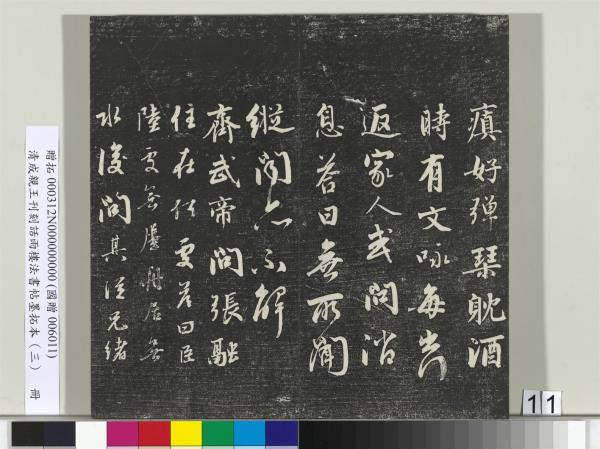 瘨好彈琴耽酒
時有文咏每出
返家人或問消
息答曰無所聞
縱問亦不解
齊武帝問張融
住在何處答曰臣
陸處無屋舟居無
水後問其從兄緒
贈拓 000312N000000000 (國贈 006011)
清成親王刊刻話雨樓法書帖墨拓本（三） 冊
11